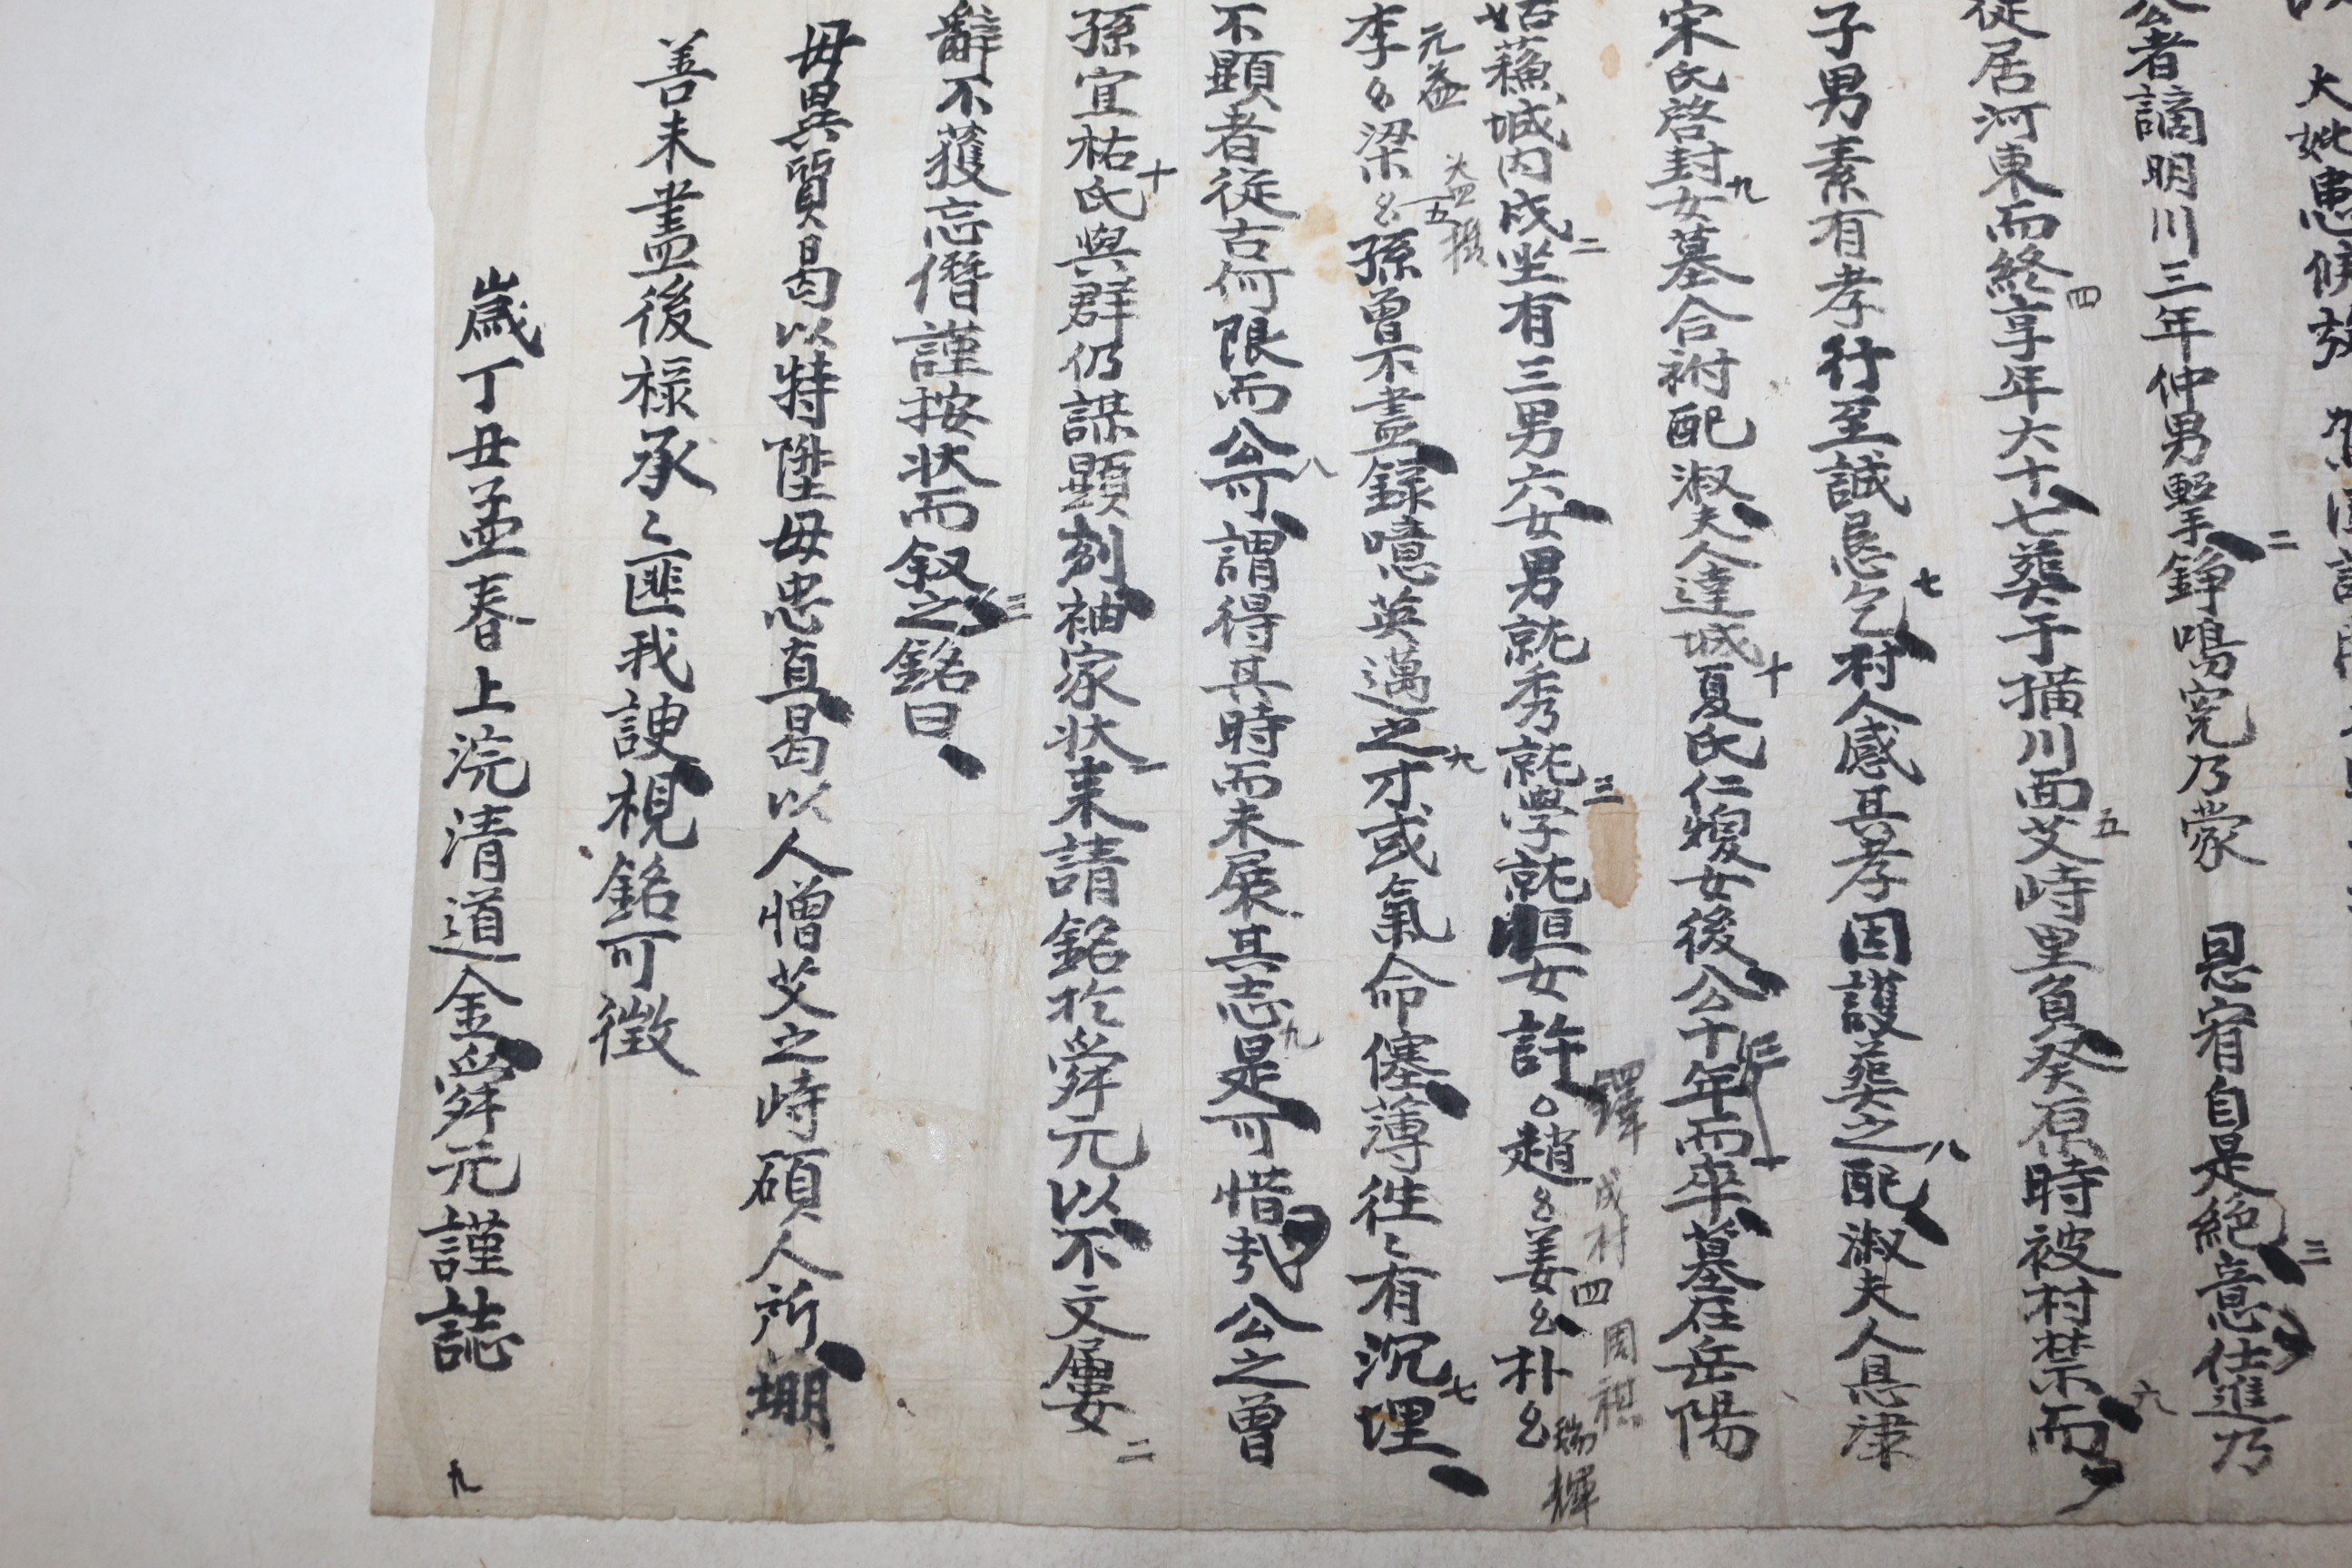 大妣患候
公者謫明川三年仲男擊錚鳴寃乃蒙 恩宥自是絕意仕進乃
徙居河東而終享年六十七葬于橫川面艾峙里負癸原時被村禁而
子男素有孝行至誠恳乞村人感其孝因護葬之配淑夫人恳津
宋氏啓封女墓合祔配淑夫人達城夏氏仁複女後公十年而卒墓在岳陽
姑蘓城內戌坐有三男六女男就秀就學就恒女許鐸趙成村姜周祺朴瑞輝
李元益梁孫曾不盡錄噫英邁之才或氣命蹇薄徃〻有沉埋
不顯者從古何限而公可謂得其時而未展其志是可惜哉公之曾
孫宜祜氏與群仍謀顯刻袖家狀來請銘於舜元以不文屢
辭不獲忘僭謹按狀而叙之銘曰
毋異質曷以特陞毋忠直曷以人憎艾之峙碩人所堋
善未盡後祿承〻匪我諛梘銘可徵
歲丁丑孟春上浣清道金舜元謹誌
九